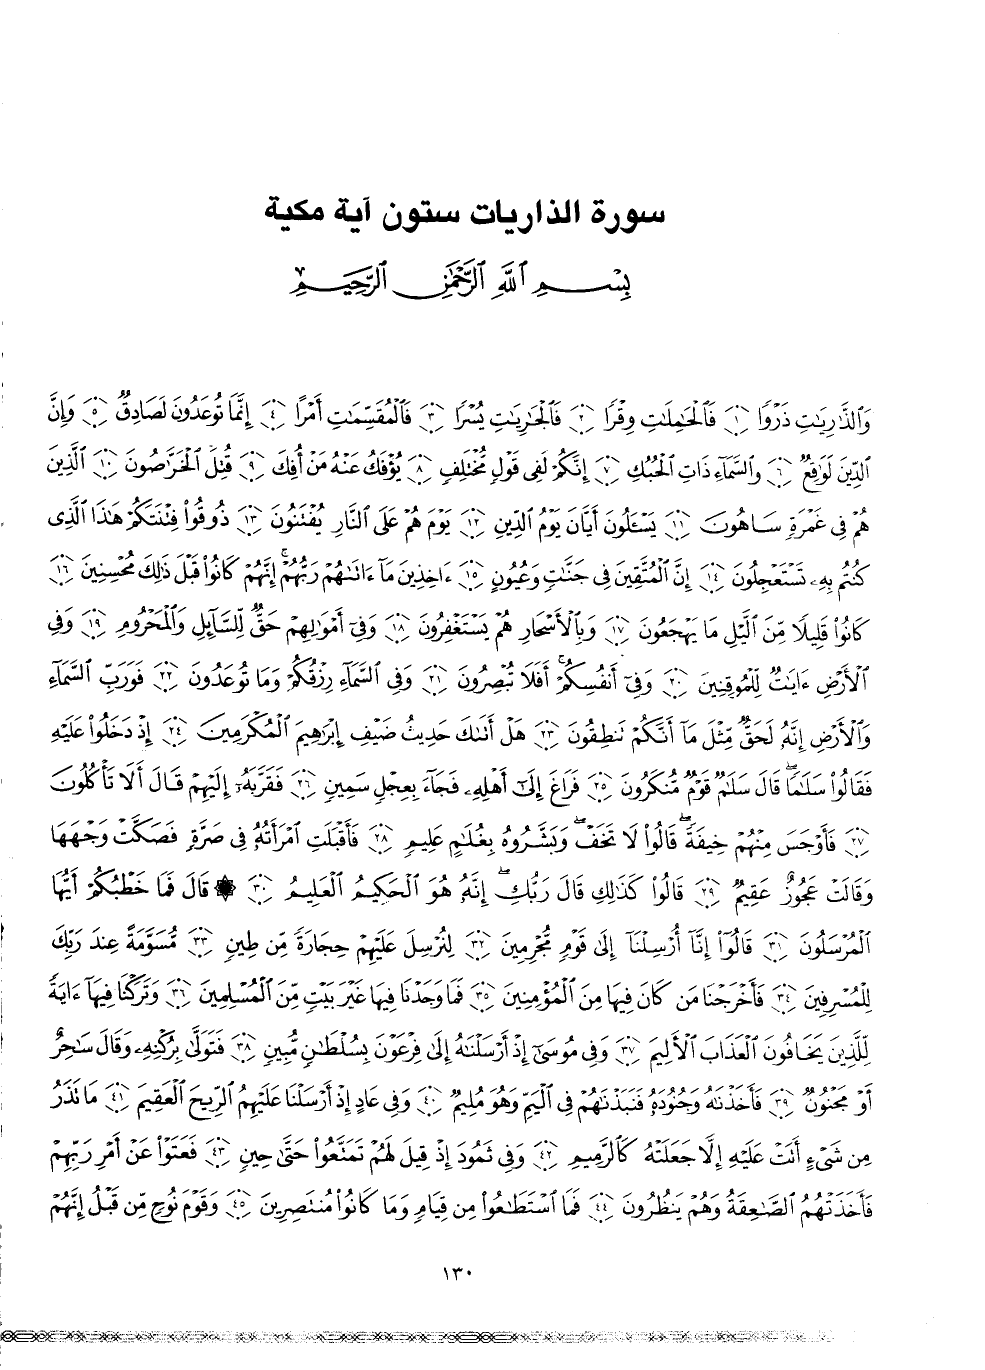 سورة الذاريات ستون آية مكية
بِسْمِ ٱللَّهِ ٱلرَّحْمَٰنِ ٱلرَّحِيمِ
وَٱلذَّٰرِيَٰتِ ذَرْوًا ١ فَٱلْحَٰمِلَٰتِ وِقْرًا ٢ فَٱلْجَٰرِيَٰتِ يُسْرًا ٣ فَٱلْمُقَسِّمَٰتِ أَمْرًا ٤ إِنَّمَا تُوعَدُونَ لَصَادِقٌ ٥ وَإِنَّ
ٱلدِّينَ لَوَٰقِعٌ ٦ وَٱلسَّمَآءِ ذَاتِ ٱلْحُبُكِ ٧ إِنَّكُمْ لَفِى قَوْلٍ مُّخْتَلِفٍ ٨ يُؤْفَكُ عَنْهُ مَنْ أُفِكَ ٩ قُتِلَ ٱلْخَرَّٰصُونَ ١٠ ٱلَّذِينَ
هُمْ فِى غَمْرَةٍ سَاهُونَ ١١ يَسْـَٔلُونَ أَيَّانَ يَوْمُ ٱلدِّينِ ١٢ يَوْمَ هُمْ عَلَى ٱلنَّارِ يُفْتَنُونَ ١٣ ذُوقُوا۟ فِتْنَتَكُمْ هَٰذَا ٱلَّذِى
كُنتُم بِهِۦ تَسْتَعْجِلُونَ ١٤ إِنَّ ٱلْمُتَّقِينَ فِى جَنَّٰتٍ وَعُيُونٍ ١٥ ءَاخِذِينَ مَآ ءَاتَىٰهُمْ رَبُّهُمْ ۚ إِنَّهُمْ كَانُوا۟ قَبْلَ ذَٰلِكَ مُحْسِنِينَ ١٦
كَانُوا۟ قَلِيلًا مِّنَ ٱلَّيْلِ مَا يَهْجَعُونَ ١٧ وَبِٱلْأَسْحَارِ هُمْ يَسْتَغْفِرُونَ ١٨ وَفِىٓ أَمْوَٰلِهِمْ حَقٌّ لِّلسَّآئِلِ وَٱلْمَحْرُومِ ١٩ وَفِى
ٱلْأَرْضِ ءَايَٰتٌ لِّلْمُوقِنِينَ ٢٠ وَفِىٓ أَنفُسِكُمْ ۚ أَفَلَا تُبْصِرُونَ ٢١ وَفِى ٱلسَّمَآءِ رِزْقُكُمْ وَمَا تُوعَدُونَ ٢٢ فَوَرَبِّ ٱلسَّمَآءِ
وَٱلْأَرْضِ إِنَّهُۥ لَحَقٌّ مِّثْلَ مَآ أَنَّكُمْ تَنطِقُونَ ٢٣ هَلْ أَتَىٰكَ حَدِيثُ ضَيْفِ إِبْرَٰهِيمَ ٱلْمُكْرَمِينَ ٢٤ إِذْ دَخَلُوا۟ عَلَيْهِ
فَقَالُوا۟ سَلَٰمًا ۖ قَالَ سَلَٰمٌ قَوْمٌ مُّنكَرُونَ ٢٥ فَرَاغَ إِلَىٰٓ أَهْلِهِۦ فَجَآءَ بِعِجْلٍ سَمِينٍ ٢٦ فَقَرَّبَهُۥٓ إِلَيْهِمْ قَالَ أَلَا تَأْكُلُونَ
٢٧ فَأَوْجَسَ مِنْهُمْ خِيفَةً ۖ قَالُوا۟ لَا تَخَفْ ۖ وَبَشَّرُوهُ بِغُلَٰمٍ عَلِيمٍ ٢٨ فَأَقْبَلَتِ ٱمْرَأَتُهُۥ فِى صَرَّةٍ فَصَكَّتْ وَجْهَهَا
وَقَالَتْ عَجُوزٌ عَقِيمٌ ٢٩ قَالُوا۟ كَذَٰلِكِ قَالَ رَبُّكِ ۖ إِنَّهُۥ هُوَ ٱلْحَكِيمُ ٱلْعَلِيمُ ٣٠ ۞ قَالَ فَمَا خَطْبُكُمْ أَيُّهَا
ٱلْمُرْسَلُونَ ٣١ قَالُوٓا۟ إِنَّآ أُرْسِلْنَآ إِلَىٰ قَوْمٍ مُّجْرِمِينَ ٣٢ لِنُرْسِلَ عَلَيْهِمْ حِجَارَةً مِّن طِينٍ ٣٣ مُّسَوَّمَةً عِندَ رَبِّكَ
لِلْمُسْرِفِينَ ٣٤ فَأَخْرَجْنَا مَن كَانَ فِيهَا مِنَ ٱلْمُؤْمِنِينَ ٣٥ فَمَا وَجَدْنَا فِيهَا غَيْرَ بَيْتٍ مِّنَ ٱلْمُسْلِمِينَ ٣٦ وَتَرَكْنَا فِيهَآ ءَايَةً
لِّلَّذِينَ يَخَافُونَ ٱلْعَذَابَ ٱلْأَلِيمَ ٣٧ وَفِى مُوسَىٰٓ إِذْ أَرْسَلْنَٰهُ إِلَىٰ فِرْعَوْنَ بِسُلْطَٰنٍ مُّبِينٍ ٣٨ فَتَوَلَّىٰ بِرُكْنِهِۦ وَقَالَ سَٰحِرٌ
أَوْ مَجْنُونٌ ٣٩ فَأَخَذْنَٰهُ وَجُنُودَهُۥ فَنَبَذْنَٰهُمْ فِى ٱلْيَمِّ وَهُوَ مُلِيمٌ ٤٠ وَفِى عَادٍ إِذْ أَرْسَلْنَا عَلَيْهِمُ ٱلرِّيحَ ٱلْعَقِيمَ ٤١ مَا تَذَرُ
مِن شَىْءٍ أَتَتْ عَلَيْهِ إِلَّا جَعَلَتْهُ كَٱلرَّمِيمِ ٤٢ وَفِى ثَمُودَ إِذْ قِيلَ لَهُمْ تَمَتَّعُوا۟ حَتَّىٰ حِينٍ ٤٣ فَعَتَوْا۟ عَنْ أَمْرِ رَبِّهِمْ
فَأَخَذَتْهُمُ ٱلصَّٰعِقَةُ وَهُمْ يَنظُرُونَ ٤٤ فَمَا ٱسْتَطَٰعُوا۟ مِن قِيَامٍ وَمَا كَانُوا۟ مُنتَصِرِينَ ٤٥ وَقَوْمَ نُوحٍ مِّن قَبْلُ إِنَّهُمْ
١٣٠